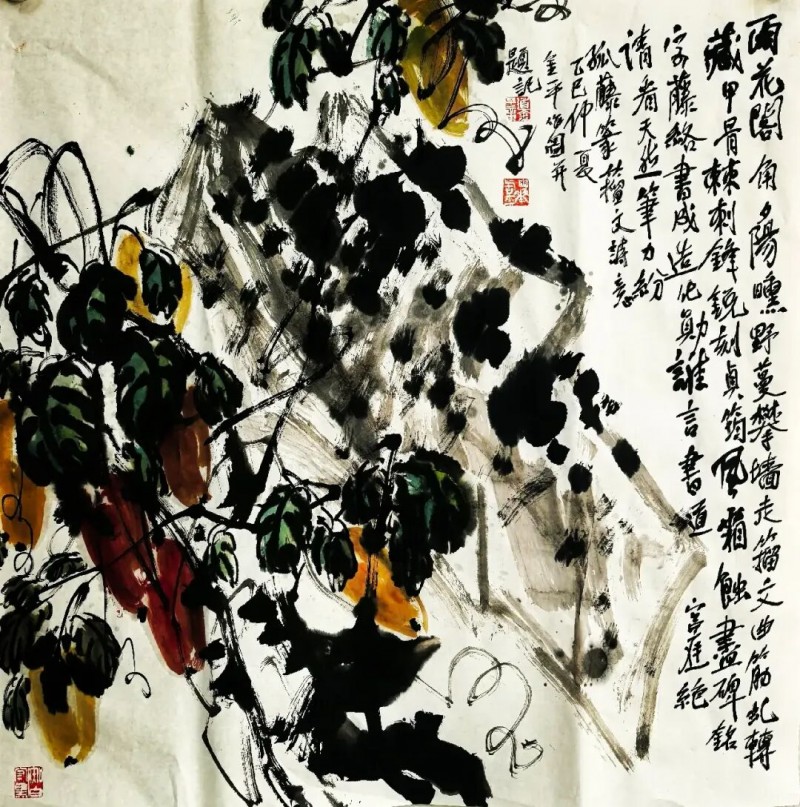 雨花閣角夕陽曛野蔓攀墻走籀文曲筋虬轉
藏甲骨棘刺鋒銳刻貞筠風霜蝕盡碑銘
字藤絡書成造化勛誰言書道宮廷絕
請看天然筆力紛
孤藤篆籀文詩意
乙巳仲夏
金平作圖并
題記